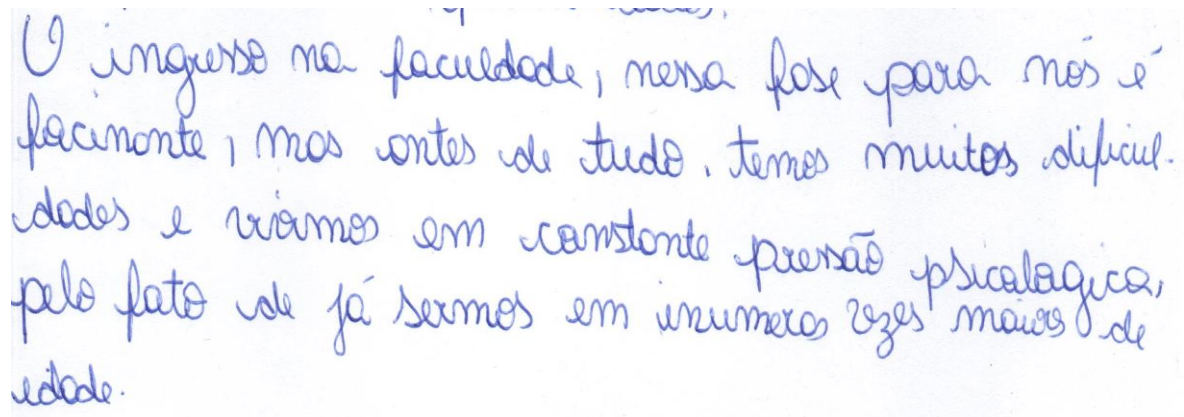 O ingresso na faculdade, nessa fase para nós é
facinante, mas antes de tudo. temos muitas dificul-
dades e viamos em constante pressão psicalagica,
pelo fato de já sermos em inumeras vezes maiores de
idade.